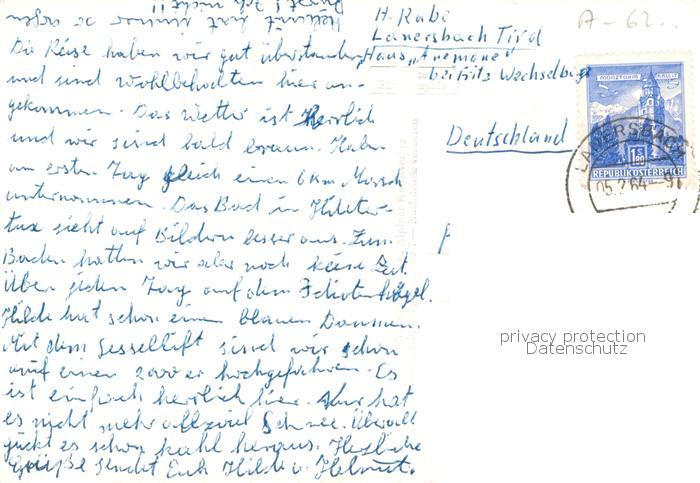 H. Rabe
Lanersbach Tirol
Haus "Anemone"
bei Fritz Wechselberger
Deutschland
Die Reise haben wir gut überstanden
und sind wohlbehalten hier an-
gekommen. Das Wetter ist herrlich
und wir sind bald braun. Haben
am ersten Tag gleich einen 6 km Marsch
unternommen. Das Bad in Hinter-
tux sieht auf Bildern besser aus. Zum
Baden hatten wir aber noch keine Zeit.
Üben jeden Tag auf dem Idiotenhügel.
Hilde hat schon einen blauen Daumen.
Mit dem Sessellift sind wir schon
auf einen 2000er hochgefahren. Es
ist einfach herrlich hier. Nur hat
es nicht mehr allzuviel Schnee. Überall
guckt es schon kahl heraus. Herzliche
Grüße sendet Euch Hilde u. Helmut.
Helmut hat immer so großen
Durst! Ich nicht!!
A-62...
MÜNZTURM HALL i.T.
S 1.50
REPUBLIK ÖSTERREICH
LANERSBACH
05.2.64-9
privacy protection
Datenschutz